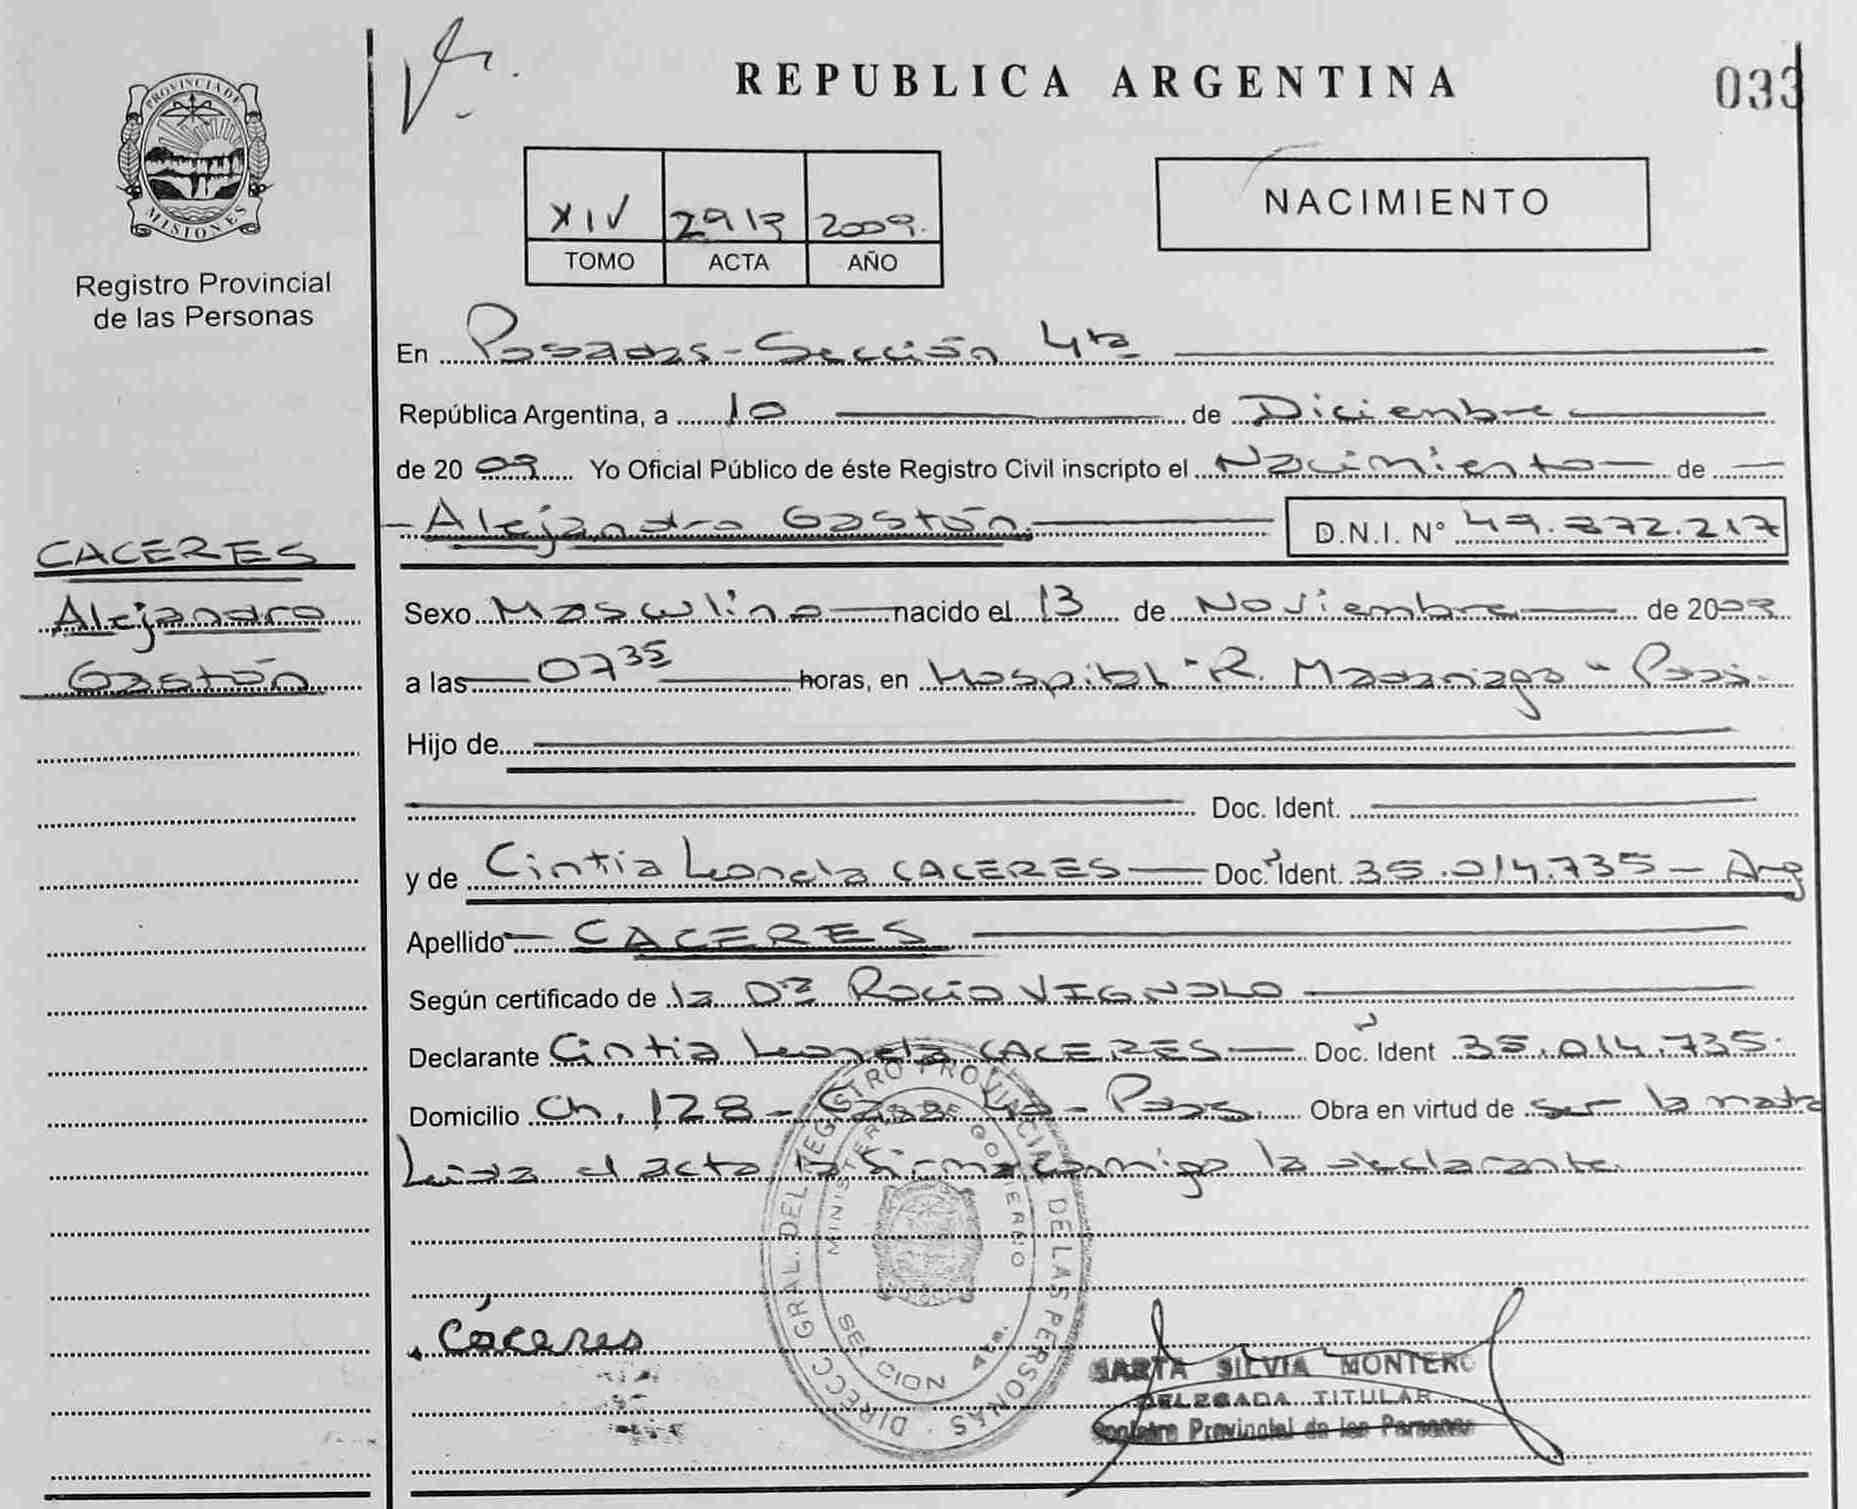 REPUBLICA ARGENTINA
033
PROVINCIA DE MISIONES
Registro Provincial
de las Personas
XIV 2913 2009.
TOMO ACTA AÑO
NACIMIENTO
En Posadas - Sección 4ta
República Argentina, a 10 de Diciembre
de 20 09 Yo Oficial Público de éste Registro Civil inscripto el Nacimiento de
Alejandro Gastón D.N.I. N° 49.872.217
CACERES
Alejandro
Gastón
Sexo Masculino nacido el 13 de Noviembre de 2009
a las 07 35 horas, en Hospital "R. Madariaga" - Pos.
Hijo de
Doc. Ident.
y de Cintia Leonela CACERES Doc. Ident. 35.014.735 - Arg
Apellido CACERES
Según certificado de la Dra Rocío VIGNOLO
Declarante Cintia Leonela CACERES Doc. Ident 35.014.735.
Domicilio Ch. 128 - Casa - Pos. Obra en virtud de ser la madre
Leída el acta la firma conmigo la declarante.
DIRECC. GRAL. DEL REGISTRO PROVINCIAL DE LAS PERSONAS
MINISTERIO DE GOBIERNO
SECCION 4ta.
Cáceres
SILVIA MONTERO
DELEGADA TITULAR
Registro Provincial de las Personas